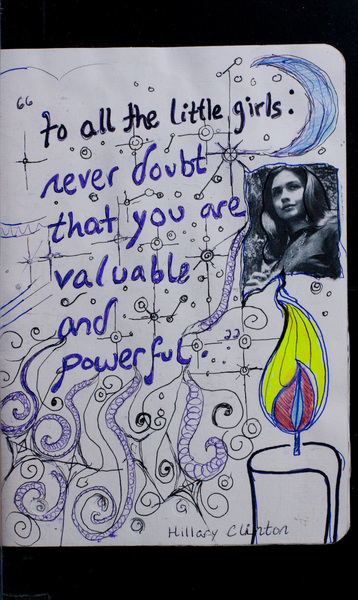 “
to all the little girls:
never doubt
that you are
valuable
and
powerful..”
Hillary Clinton